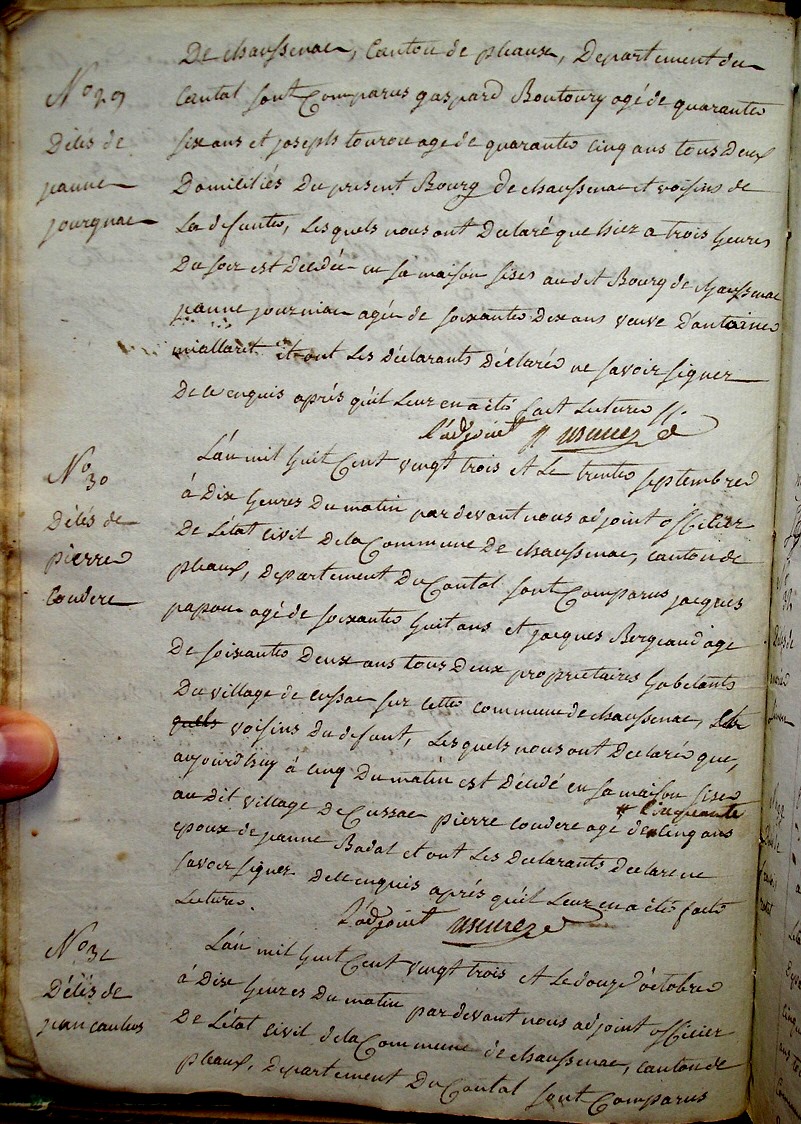 De chaussenac, Canton de pleaux, Departement du
No 29
Cantal sont Comparus gaspard Boutoury agé de quarante
Décés de
six ans et joseph tourou age de quarante cinq ans tous Deux
jeanne
Domiciliés Du present Bourg de chaussenac et voisins de
journiac
La defunte, Lesquels nous ont Declaré que hier a trois heures
Du soir est Décédée en sa maison sises au dit Bourg de chaussenac
jeanne journiac agée de soixante Dix ans veuve D'antoine
miallaret et ont Les Déclarants Déclaré ne savoir signer
De ce enquis aprés qu'il Leur en a été fait Lecture
L'adjoint
No 30
L'an mil huit Cent vingt trois et Le trente septembre
à Dix heures Du matin pardevant nous adjoint officier
Décés de
De L'état Civil De la Commune De chaussenac, canton de
pierre
pleaux, Departement Du Cantal sont Comparus jacques
Coudere
papou agé de soixante huit ans et jacques Bergeaud age
De soixante Deux ans tous Deux proprietaires habitants
Du village de Cussac sur cette commune de chaussenac, Les
quels voisins du defunt, Lesquels nous ont Declaré que,
aujourd'huy à cinq Du matin est Décédé en sa maison sise
au dit village De Cussac pierre Coudere age de cinq ans
* Cinquante
epoux de jeanne Badal et ont Les Declarants Declare ne
savoir signer De ce enquis aprés qu'il Leur en a été faite
Lecture.
L'adjoint
No 31
L'an mil huit Cent vingt trois et Le douze d'octobre
Décés de
à Dix heures Du matin pardevant nous adjoint officier
jean
De L'état Civil de la Commune de chaussenac, canton de
pleaux, Departement Du Cantal sont Comparus